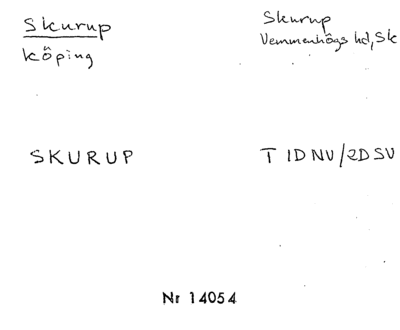 Skurup
köping
Skurup
Vemmenhögs hd, Sk
SKURUP
T 1D NV/2D SV
Nr 14054